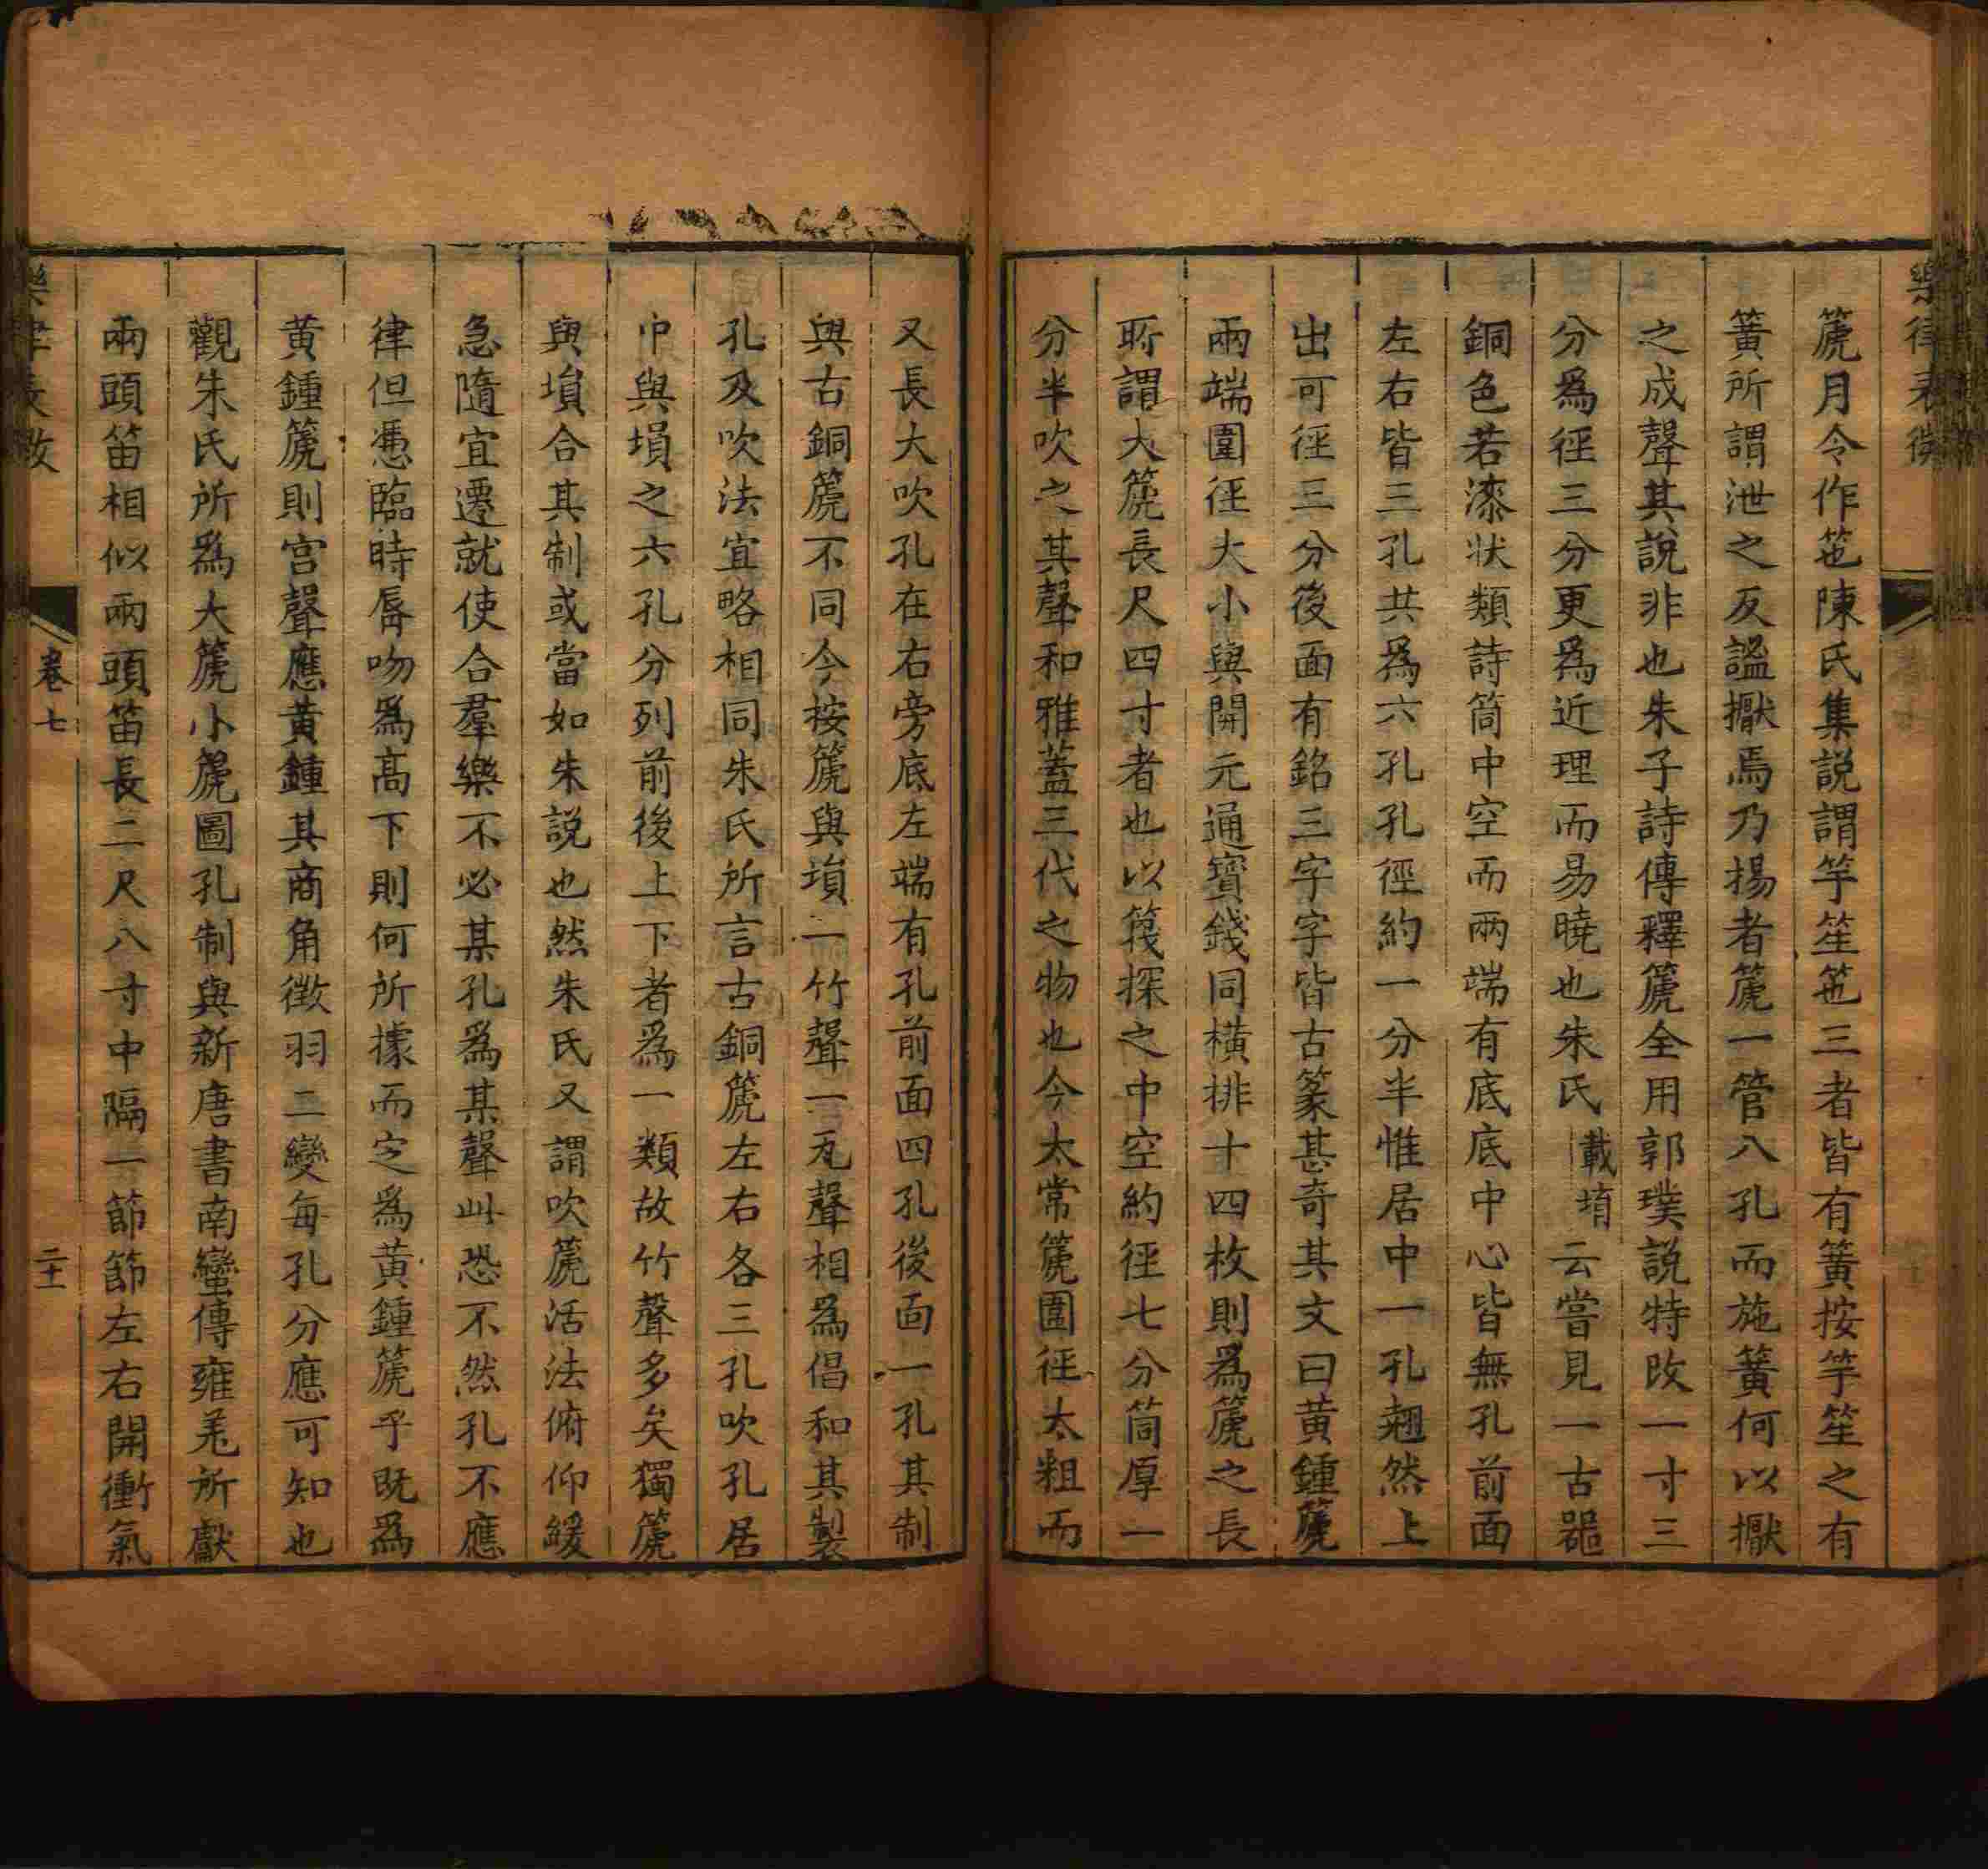 樂律表微
篪月令作竾陳氏集説謂竽笙竾三者皆有簧按竽笙之有
簧所謂泄之反謐擫焉乃揚者篪一管八孔而施簧何以擫
之成聲其說非也朱子詩傳釋篪全用郭璞説特改一寸三
分爲徑三分更爲近理而易曉也朱氏載堉云嘗見一古器
銅色若漆状類詩筒中空而兩端有底底中心皆無孔前面
左右皆三孔共爲六孔孔徑約一分半惟居中一孔翹然上
出可徑三分後面有銘三字字皆古篆甚奇其文曰黄鍾篪
兩端圍徑大小與開元通寳錢同横排十四枚則爲篪之長
所謂大篪長尺四寸者也以筏探之中空約徑七分筒厚一
分半吹之其聲和雅蓋三代之物也今太常篪圍徑太粗而
又長大吹孔在右旁底左端有孔前面四孔後面一孔其制
與古銅篪不同今按篪與塤一竹聲一瓦聲相爲倡和其製
孔及吹法宜略相同朱氏所言古銅篪左右各三孔吹孔居
中與塤之六孔分列前後上下者爲一類故竹聲多矣獨篪
與塤合其制或當如朱説也然朱氏又謂吹篪活法俯仰緩
急隨宜遷就使合羣樂不必某孔爲某聲此恐不然孔不應
律但憑臨時脣吻爲髙下則何所據而定爲黄鍾篪乎既爲
黄鍾篪則宫聲應黄鍾其商角徴羽二變每孔分應可知也
觀朱氏所爲大篪小篪圖孔制與新唐書南蠻傳雍羌所獻
兩頭笛相似兩頭笛長二尺八寸中隔一節節左右開衝氣
樂律表微
卷七
二十